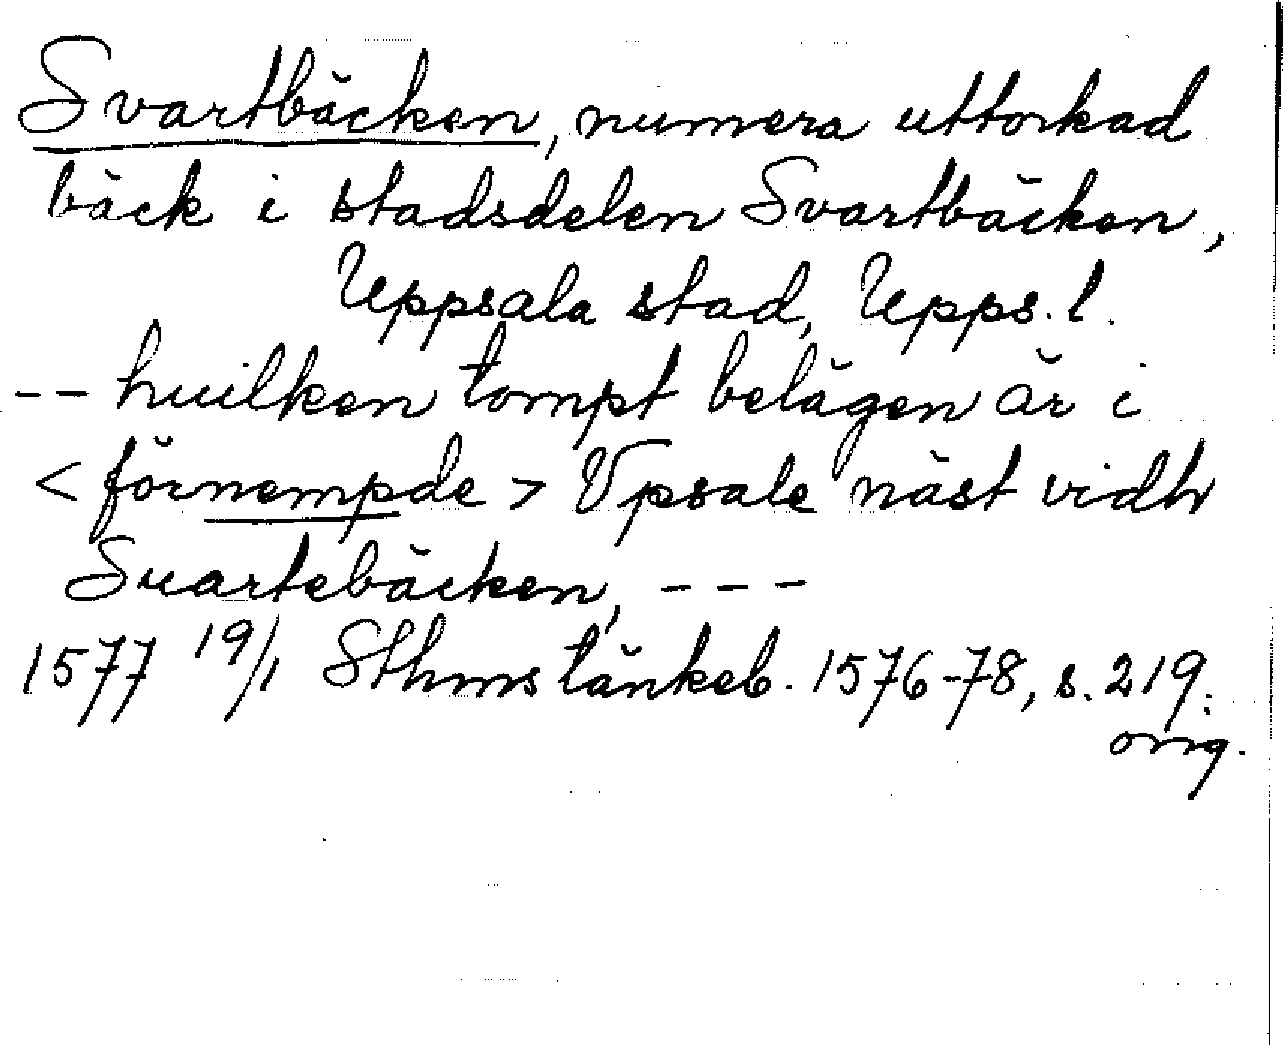 Svartbäcken, numera uttorkad
bäck i stadsdelen Svartbäcken,
Uppsala stad, Upps. l.
-- huilken tompt belägen är i
< förnempde > Vpsale näst vidh
Suartebäcken, ---
1577 19/1 Sthms tänkeb. 1576-78, s. 219.
orig.